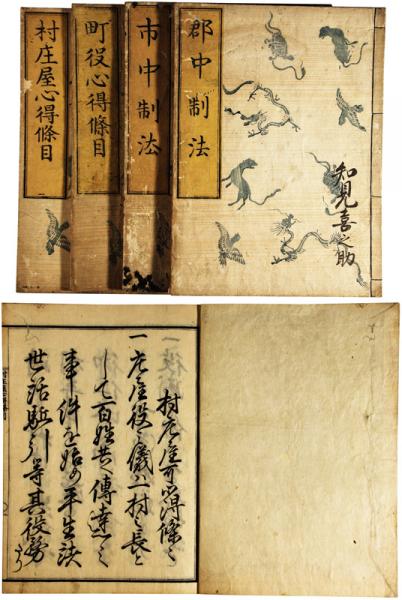 知見喜之助
郡中制法
市中制法
町役心得條目
村庄屋心得條目
村庄屋可心得條々
一庄屋役之儀ハ一村之長と
して百姓共へ傳達之
事件を始め平生諸
世話駈引等其役労